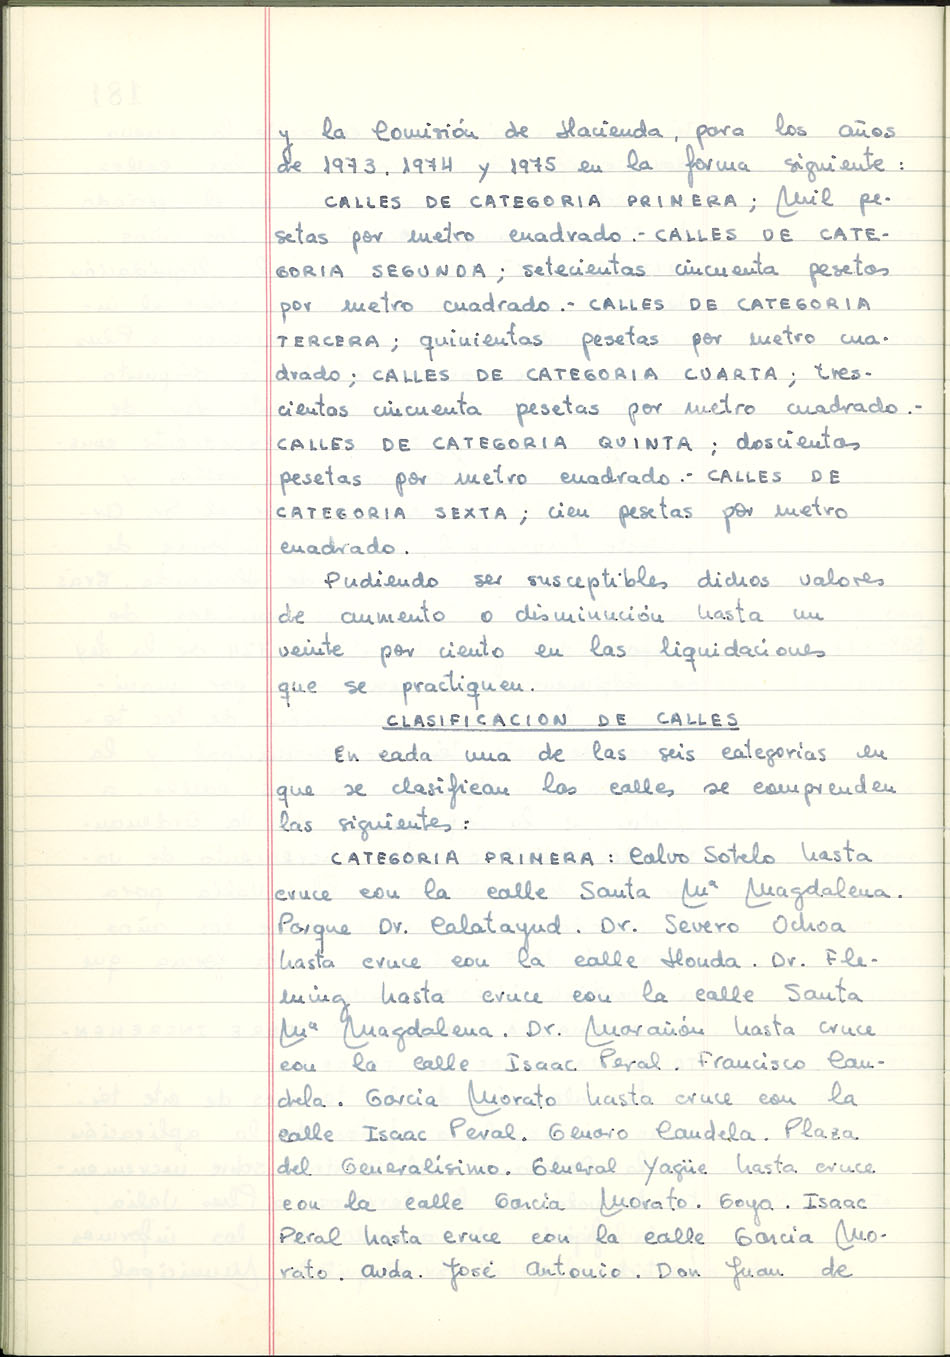 y la Comisión de Hacienda, para los años
de 1973, 1974 y 1975 en la forma siguiente:
CALLES DE CATEGORIA PRIMERA; Mil pe-
setas por metro cuadrado.- CALLES DE CATE-
GORIA SEGUNDA; setecientas cincuenta pesetas
por metro cuadrado.- CALLES DE CATEGORIA
TERCERA; quinientas pesetas por metro cua-
drado; CALLES DE CATEGORIA CUARTA; tres-
cientas cincuenta pesetas por metro cuadrado.-
CALLES DE CATEGORIA QUINTA; doscientas
pesetas por metro cuadrado.- CALLES DE
CATEGORIA SEXTA; cien pesetas por metro
cuadrado.
Pudiendo ser susceptibles dichos valores
de aumento o disminución hasta un
veinte por ciento en las liquidaciones
que se practiquen.
CLASIFICACION DE CALLES
En cada una de las seis categorias en
que se clasifican las calles se comprenden
las siguientes:
CATEGORIA PRIMERA: Calvo Sotelo hasta
cruce con la calle Santa Mª Magdalena.
Parque Dr. Calatayud. Dr. Severo Ochoa
hasta cruce con la calle Honda. Dr. Fle-
ming hasta cruce con la calle Santa
Mª Magdalena. Dr. Marañón hasta cruce
con la calle Isaac Peral. Francisco Can-
dela. Garcia Morato hasta cruce con la
calle Isaac Peral. Genaro Candela. Plaza
del Generalísimo. General Yagüe hasta cruce
con la calle Garcia Morato. Goya. Isaac
Peral hasta cruce con la calle Garcia Mo-
rato. Avda. José Antonio. Don Juan de